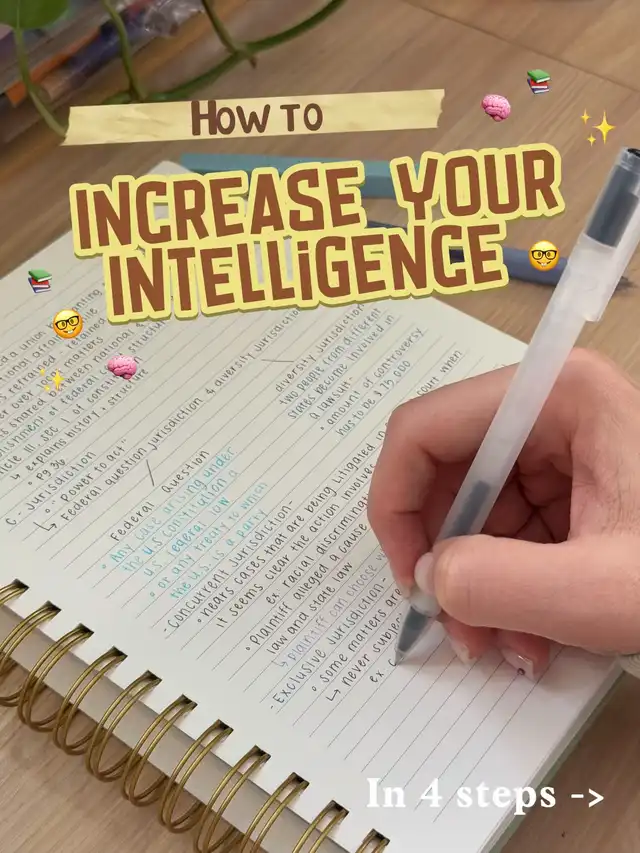 How to
INCREASE YOUR
INTELLiGENCE
article III, sec. 1 of constitution
↳ explains history + structure
• pg 36
C - Jurisdiction
↳ • "Power to act"
• Federal question jurisdiction & diversity jurisdiction
Federal Question
• Any case arising under
the U.S constitution a
us federal law
• or any treaty to which
the U.S is a party
diversity jurisdiction
two people from different
states become involved in
a lawsuit
• amount of controversy
has to be $75,000
- Concurrent Jurisdiction-
• hears cases that are being litigated in
court when
it seems clear the action involves
ex racial discrimination
• Plaintiff alleged a cause
law and state law
↳ plaintiff can choose
- Exclusive Jurisdiction-
• some matters are
↳ never subject
ex
In 4 steps ->